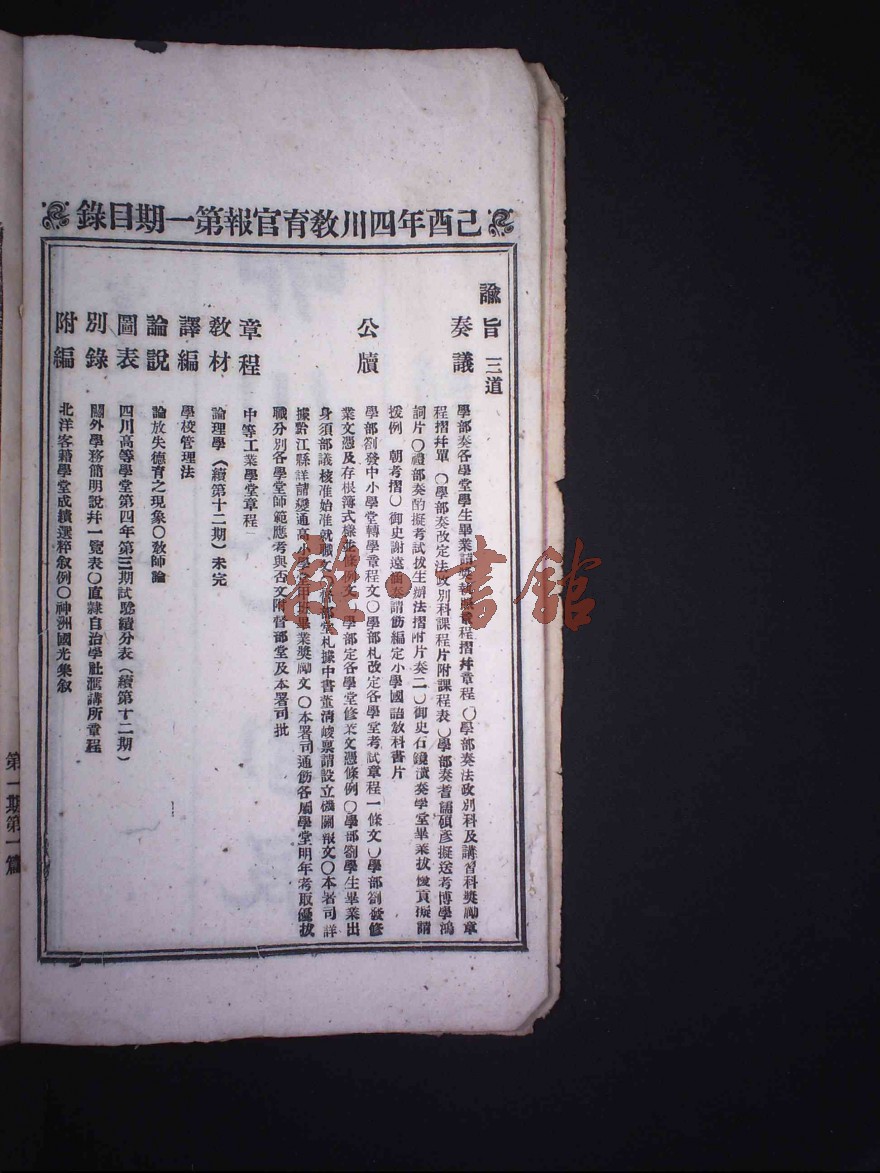 己酉年四川教育官報第一期目錄
諭旨 三道
奏議
學部奏各學堂學生畢業請獎執照章程摺幷章程○學部奏法政別科及講習科獎勵章
程摺幷單○學部奏改定法政別科課程片附課程表○學部奏耆儒碩彥擬送考博學鴻
詞片○禮部奏酌擬考試拔生辦法摺附片奏二○御史石鏡潢奏學堂畢業拔優貢擬請
援例 朝考摺○御史謝遠涵奏請飭編定小學國語敎科書片
公牘
學部劄發中小學堂轉學章程文○學部札改定各學堂考試章程一條文○學部劄發修
業文憑及存根簿式樣並條例文○學部定各學堂修業文憑條例○學部劄學生畢業出
身須部議核准始准就職文○修部堂札據中書董清峻禀請設立機關報文○本署司詳
據黔江縣詳請變通高小學堂甲班畢業獎勵文○本署司通飭各屬學堂明年考取優拔
職分別各學堂師範應考與否文附督部堂及本署司批
章程
中等工業學堂章程
敎材
論理學(續第十二期)未完
譯編
學校管理法
論說
論放失德育之現象○敎師論
圖表
四川高等學堂第四年第三期試驗績分表(續第十二期)
別錄
關外學務簡明說幷一覽表○直隸自治學社滙講所章程
附編
北洋客籍學堂成績選粹敘例○神洲國光集敘
第一期第一篇
雅·書館